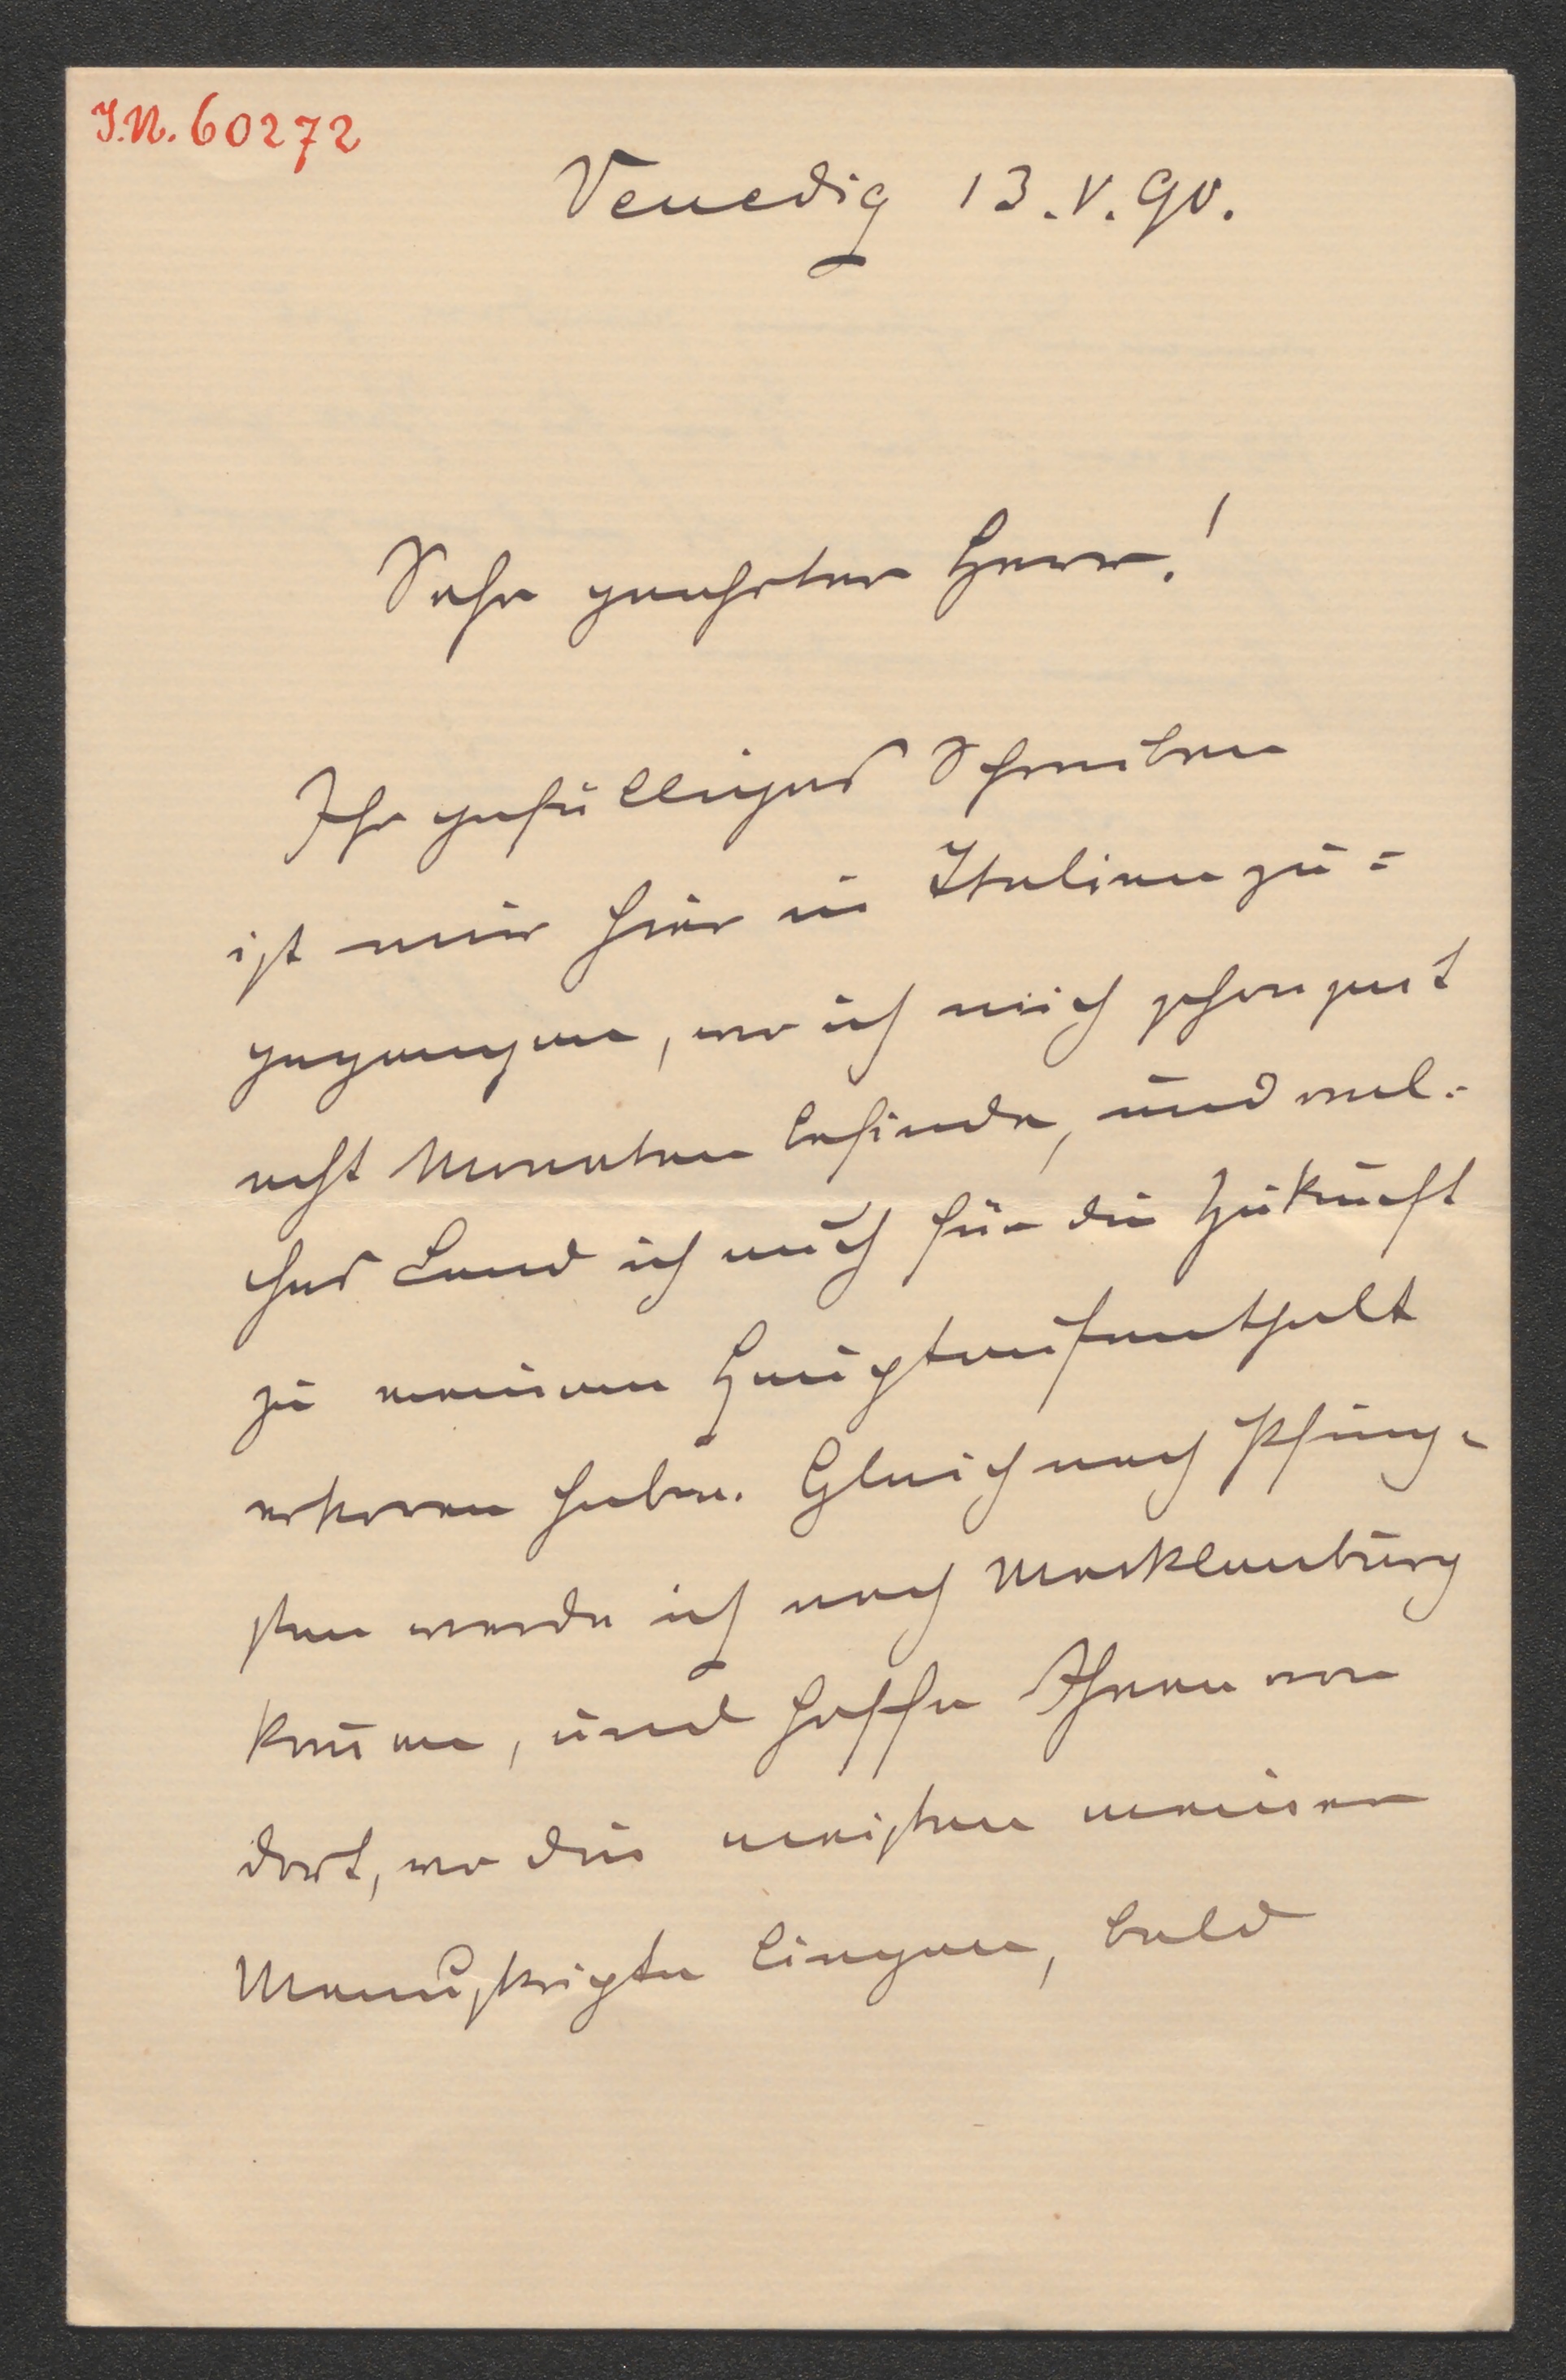 I.N. 60272
Venedig 13.V.90.
Sehr geehrter Herr!
Ihr gefälliges Schreiben
ist mir hier in Italien zu=
gegangen, wo ich mich schon seit
acht Monaten befinde, und wel=
ches Land ich auch für die Zukunft
zu meinem Hauptaufenthalt
erkoren habe. Gleich nach Pfing=
sten werde ich nach Mecklenburg
kommen, und hoffe Ihnen von
dort, wo die meisten meiner
Manuskripte liegen, bald